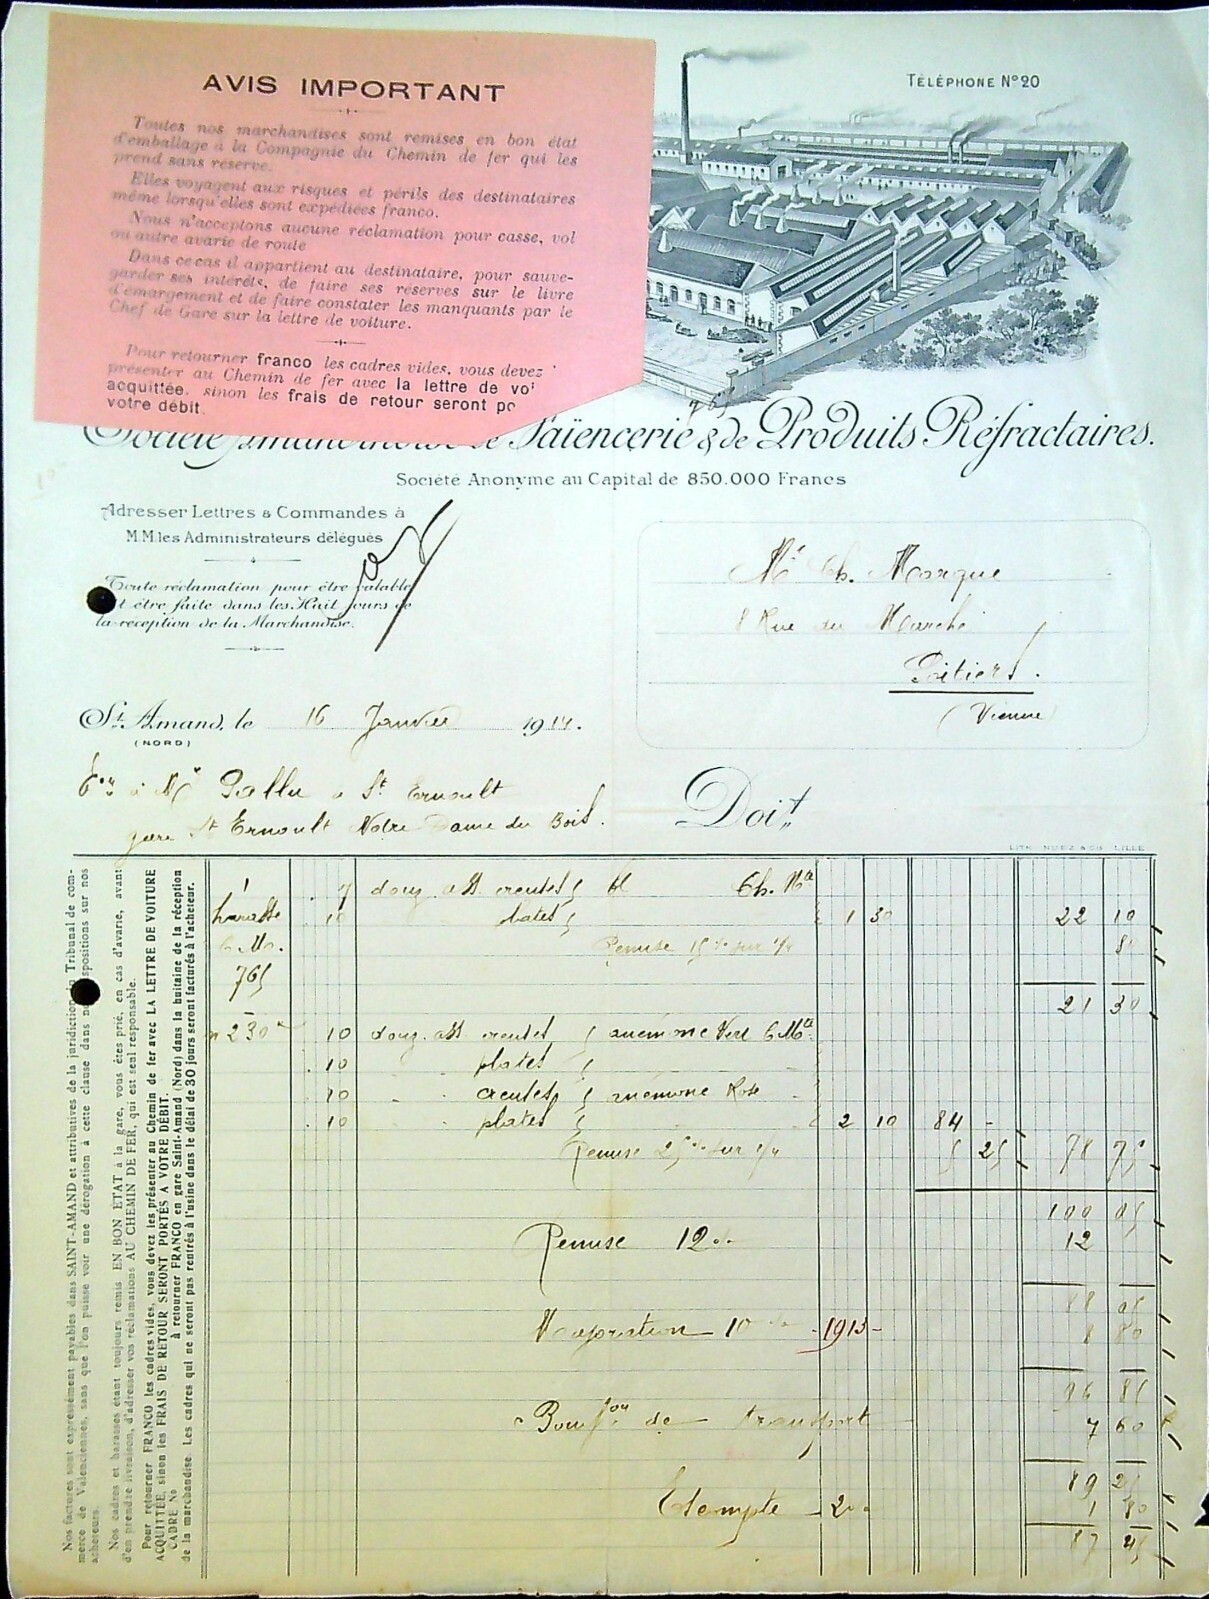 AVIS IMPORTANT
Toutes nos marchandises sont remises en bon état
d'emballage à la Compagnie du Chemin de fer qui les
prend sans réserve.
Elles voyagent aux risques et périls des destinataires
même lorsqu'elles sont expédiées franco.
Nous n'acceptons aucune réclamation pour casse, vol
ou autre avarie de route
Dans ce cas il appartient au destinataire, pour sauve-
garder ses intérêts, de faire ses réserves sur le livre
d'émargement et de faire constater les manquants par le
Chef de Gare sur la lettre de voiture.
Pour retourner franco les cadres vides, vous devez
présenter au Chemin de fer avec la lettre de voi
acquittée, sinon les frais de retour seront po
votre débit.
TÉLÉPHONE Nº 20
Société de Faïencerie & de Produits Réfractaires.
Société Anonyme au Capital de 850.000 Francs
Adresser Lettres & Commandes à
M.M. les Administrateurs délégués
Toute réclamation pour être valable
t être faite dans les Huit jours de
la réception de la Marchandise.
Mr Ch. Marque
8 Rue du Marché
Poitiers.
(Vienne)
St Amand, le 16 Janvier 1914.
(NORD)
à Mr Pallu à St Ernoult
gare St Ernoult Notre Dame du Bois.
Doit
LILLE
1 7 douz. ass. creuses
10 plates 1 30 22 10
Remise 80
765
21 30
230 10 douz. ass. creuses anémone Vert
10 plates
10 creuses anémone Rose
10 plates 2 10 84 -
Remise 25 5 25 78 75
100 05
Remise 12 % 12
88 05
Majoration 10 % - 1913 - 8 80
96 85
Bonifon de transport 7 60
89 25
Escompte 2 % 1 80
87 45
Nos factures sont expressément payables dans SAINT-AMAND et attributives de la juridiction du Tribunal de com-
merce de Valenciennes, sans que l'on puisse voir une dérogation à cette clause dans nos dispositions sur nos
acheteurs.
Nos cadres et harasses étant toujours remis EN BON ÉTAT à la gare, vous êtes prié, en cas d'avarie, avant
d'en prendre livraison, d'adresser vos réclamations AU CHEMIN DE FER, qui est seul responsable.
Pour retourner FRANCO les cadres vides, vous devez les présenter au Chemin de fer avec LA LETTRE DE VOITURE
ACQUITTÉE, sinon les FRAIS DE RETOUR SERONT PORTÉS A VOTRE DÉBIT.
CADRE No à retourner FRANCO en gare Saint-Amand (Nord) dans la huitaine de la réception
de la marchandise. Les cadres qui ne seront pas rentrés à l'usine dans le délai de 30 jours seront facturés à l'acheteur.